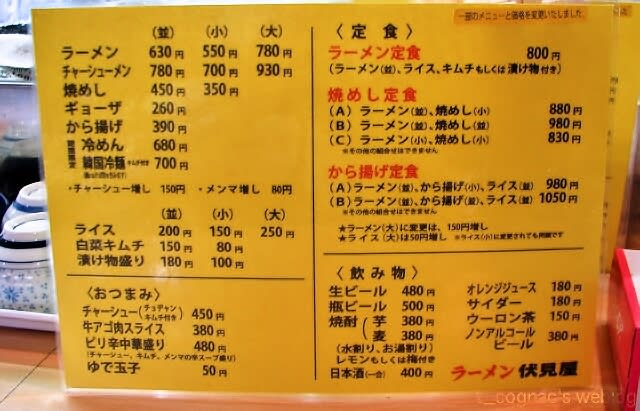 一部のメニューと価格を変更いたしました
(並) (小) (大)
ラーメン 630円 550円 780円
チャーシューメン 780円 700円 930円
焼めし 450円 350円
ギョーザ 260円
から揚げ 390円
期間限定 冷めん 680円
韓国冷麺 キムチ付き 700円
・チャーシュー増し 150円 ・メンマ増し 80円
(並) (小) (大)
ライス 200円 150円 250円
白菜キムチ 150円 80円
漬け物盛り 180円 100円
〈おつまみ〉
チャーシュー(チョヂャン キムチ付き) 450円
牛アゴ肉スライス 380円
ピリ辛中華盛り 480円
(チャーシュー、キムチ、メンマの辛スープ盛り)
ゆで玉子 50円
〈定食〉
ラーメン定食 800円
(ラーメン(並)、ライス、キムチもしくは漬け物付き)
焼めし定食
(A) ラーメン(並)、焼めし(小) 880円
(B) ラーメン(並)、焼めし(並) 980円
(C) ラーメン(小)、焼めし(小) 830円
※その他の組合せはできません
から揚げ定食
(A) ラーメン(並)、から揚げ(小)、ライス(並) 980円
(B) ラーメン(並)、から揚げ(並)、ライス(並) 1050円
※その他の組合せはできません
★ラーメン(大)に変更は、150円増し
★ライス(大)は50円増し ※ライス(小)に変更されても同額です
〈飲み物〉
生ビール 480円
瓶ビール 500円
焼酎(芋 380円
麦 380円
(水割り、お湯割り)
レモンもしくは梅付き
日本酒(一合) 400円
オレンジジュース 180円
サイダー 180円
ウーロン茶 150円
ノンアルコールビール 380円
ラーメン 伏見屋
t_cognac's weblog